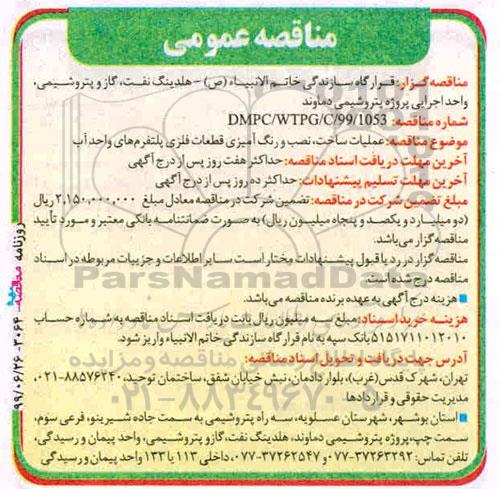 مناقصه عمومی
مناقصه گزار: قرارگاه سازندگی خاتم الانبیاء (ص) - هلدینگ نفت، گاز و پتروشیمی،
واحد اجرایی پروژه پتروشیمی دماوند
شماره مناقصه: DMPC/WTPG/C/99/1053
موضوع مناقصه: عملیات ساخت، نصب و رنگ آمیزی قطعات فلزی پلتفرم‌های واحد آب
آخرین مهلت دریافت اسناد مناقصه: حداکثر هفت روز پس از درج آگهی
آخرین مهلت تسلیم پیشنهادات: حداکثر ده روز پس از درج آگهی
مبلغ تضمین شرکت در مناقصه: تضمین شرکت در مناقصه معادل مبلغ ۲,۱۵۰,۰۰۰,۰۰۰ ریال
(دو میلیارد و یکصد و پنجاه میلیون ریال) به صورت ضمانتنامه بانکی معتبر و مورد تأیید
مناقصه گزار می‌باشد.
مناقصه گزار در رد یا قبول پیشنهادات مختار است سایر اطلاعات و جزییات مربوطه در اسناد
مناقصه درج شده است.
■ هزینه درج آگهی به عهده برنده مناقصه می‌باشد.
هزینه خرید اسناد: مبلغ سه میلیون ریال بابت دریافت اسناد مناقصه به شماره حساب
۵۱۵۱۷۱۱۰۱۲۰۱۰ بانک سپه به نام قرارگاه سازندگی خاتم الانبیاء واریز شود.
آدرس جهت دریافت و تحویل اسناد مناقصه:
تهران، شهرک قدس (غرب)، بلوار دادمان، نبش خیابان شفق، ساختمان توحید، ۸۸۵۷۶۲۴۰-۰۲۱،
مدیریت حقوقی و قراردادها.
■ استان بوشهر، شهرستان عسلویه، سه راه پتروشیمی به سمت جاده شیرینو، فرعی سوم،
سمت چپ، پروژه پتروشیمی دماوند، هلدینگ نفت، گاز و پتروشیمی، واحد پیمان و رسیدگی،
تلفن تماس: ۳۷۲۶۳۲۹۲-۰۷۷ و ۳۷۲۶۲۵۴۷-۰۷۷، داخلی ۱۱۳ یا ۱۳۳ واحد پیمان و رسیدگی
روزنامه مناقصه ۳۰۶۴-۹۹/۰۶/۲۶
ParsNamadData
۰۲۱-۸۸۳۴۹۶۷۰